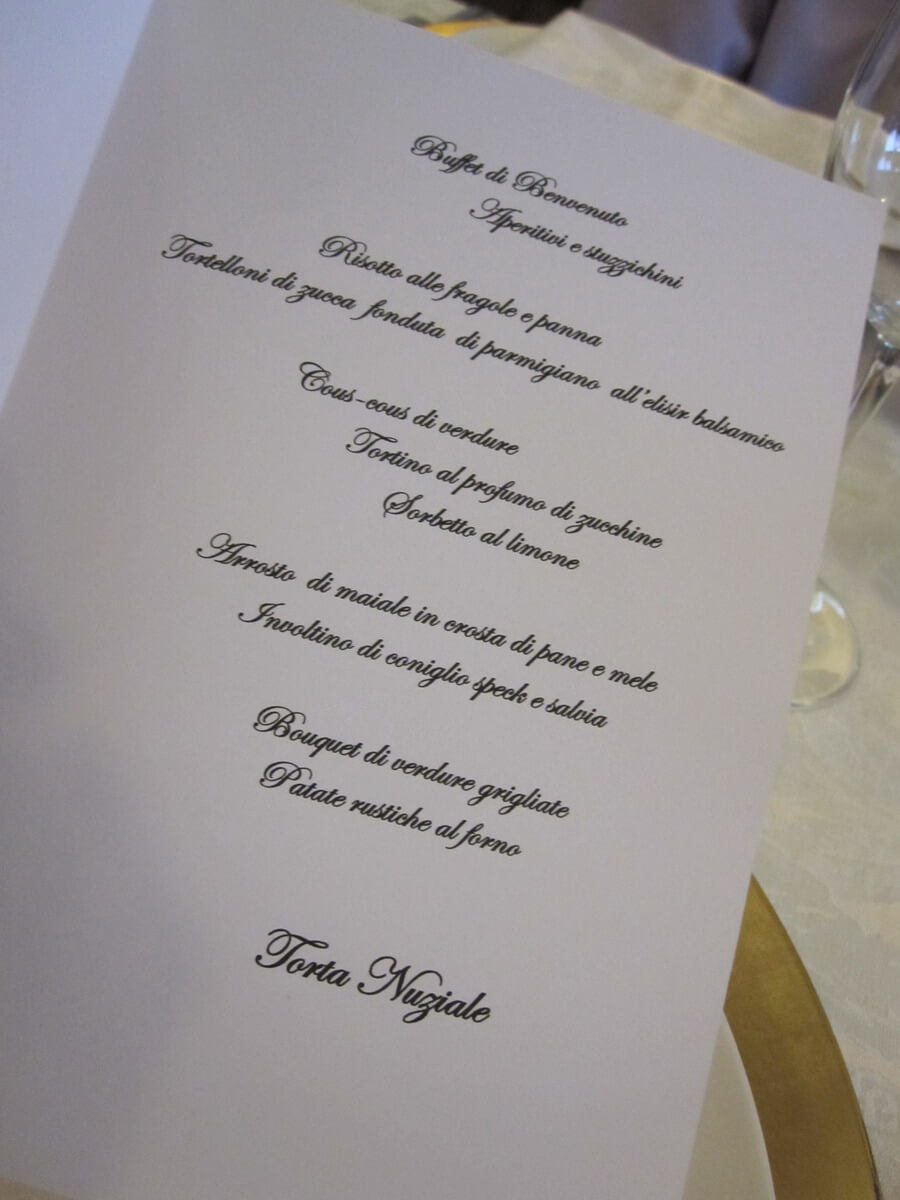 Buffet di Benvenuto
Aperitivi e stuzzichini
Risotto alle fragole e panna
Tortelloni di zucca fonduta di parmigiano all'elisir balsamico
Cous-cous di verdure
Tortino al profumo di zucchine
Sorbetto al limone
Arrosto di maiale in crosta di pane e mele
Involtino di coniglio speck e salvia
Bouquet di verdure grigliate
Patate rustiche al forno
Torta Nuziale